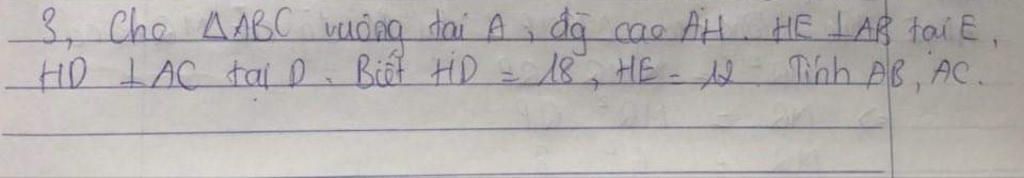 3, Cho ΔABC vuông tại A, đg cao AH. HE ⊥AB tại E,
HD ⊥AC tại D. Biết HD = 18, HE = 12 Tính AB, AC.